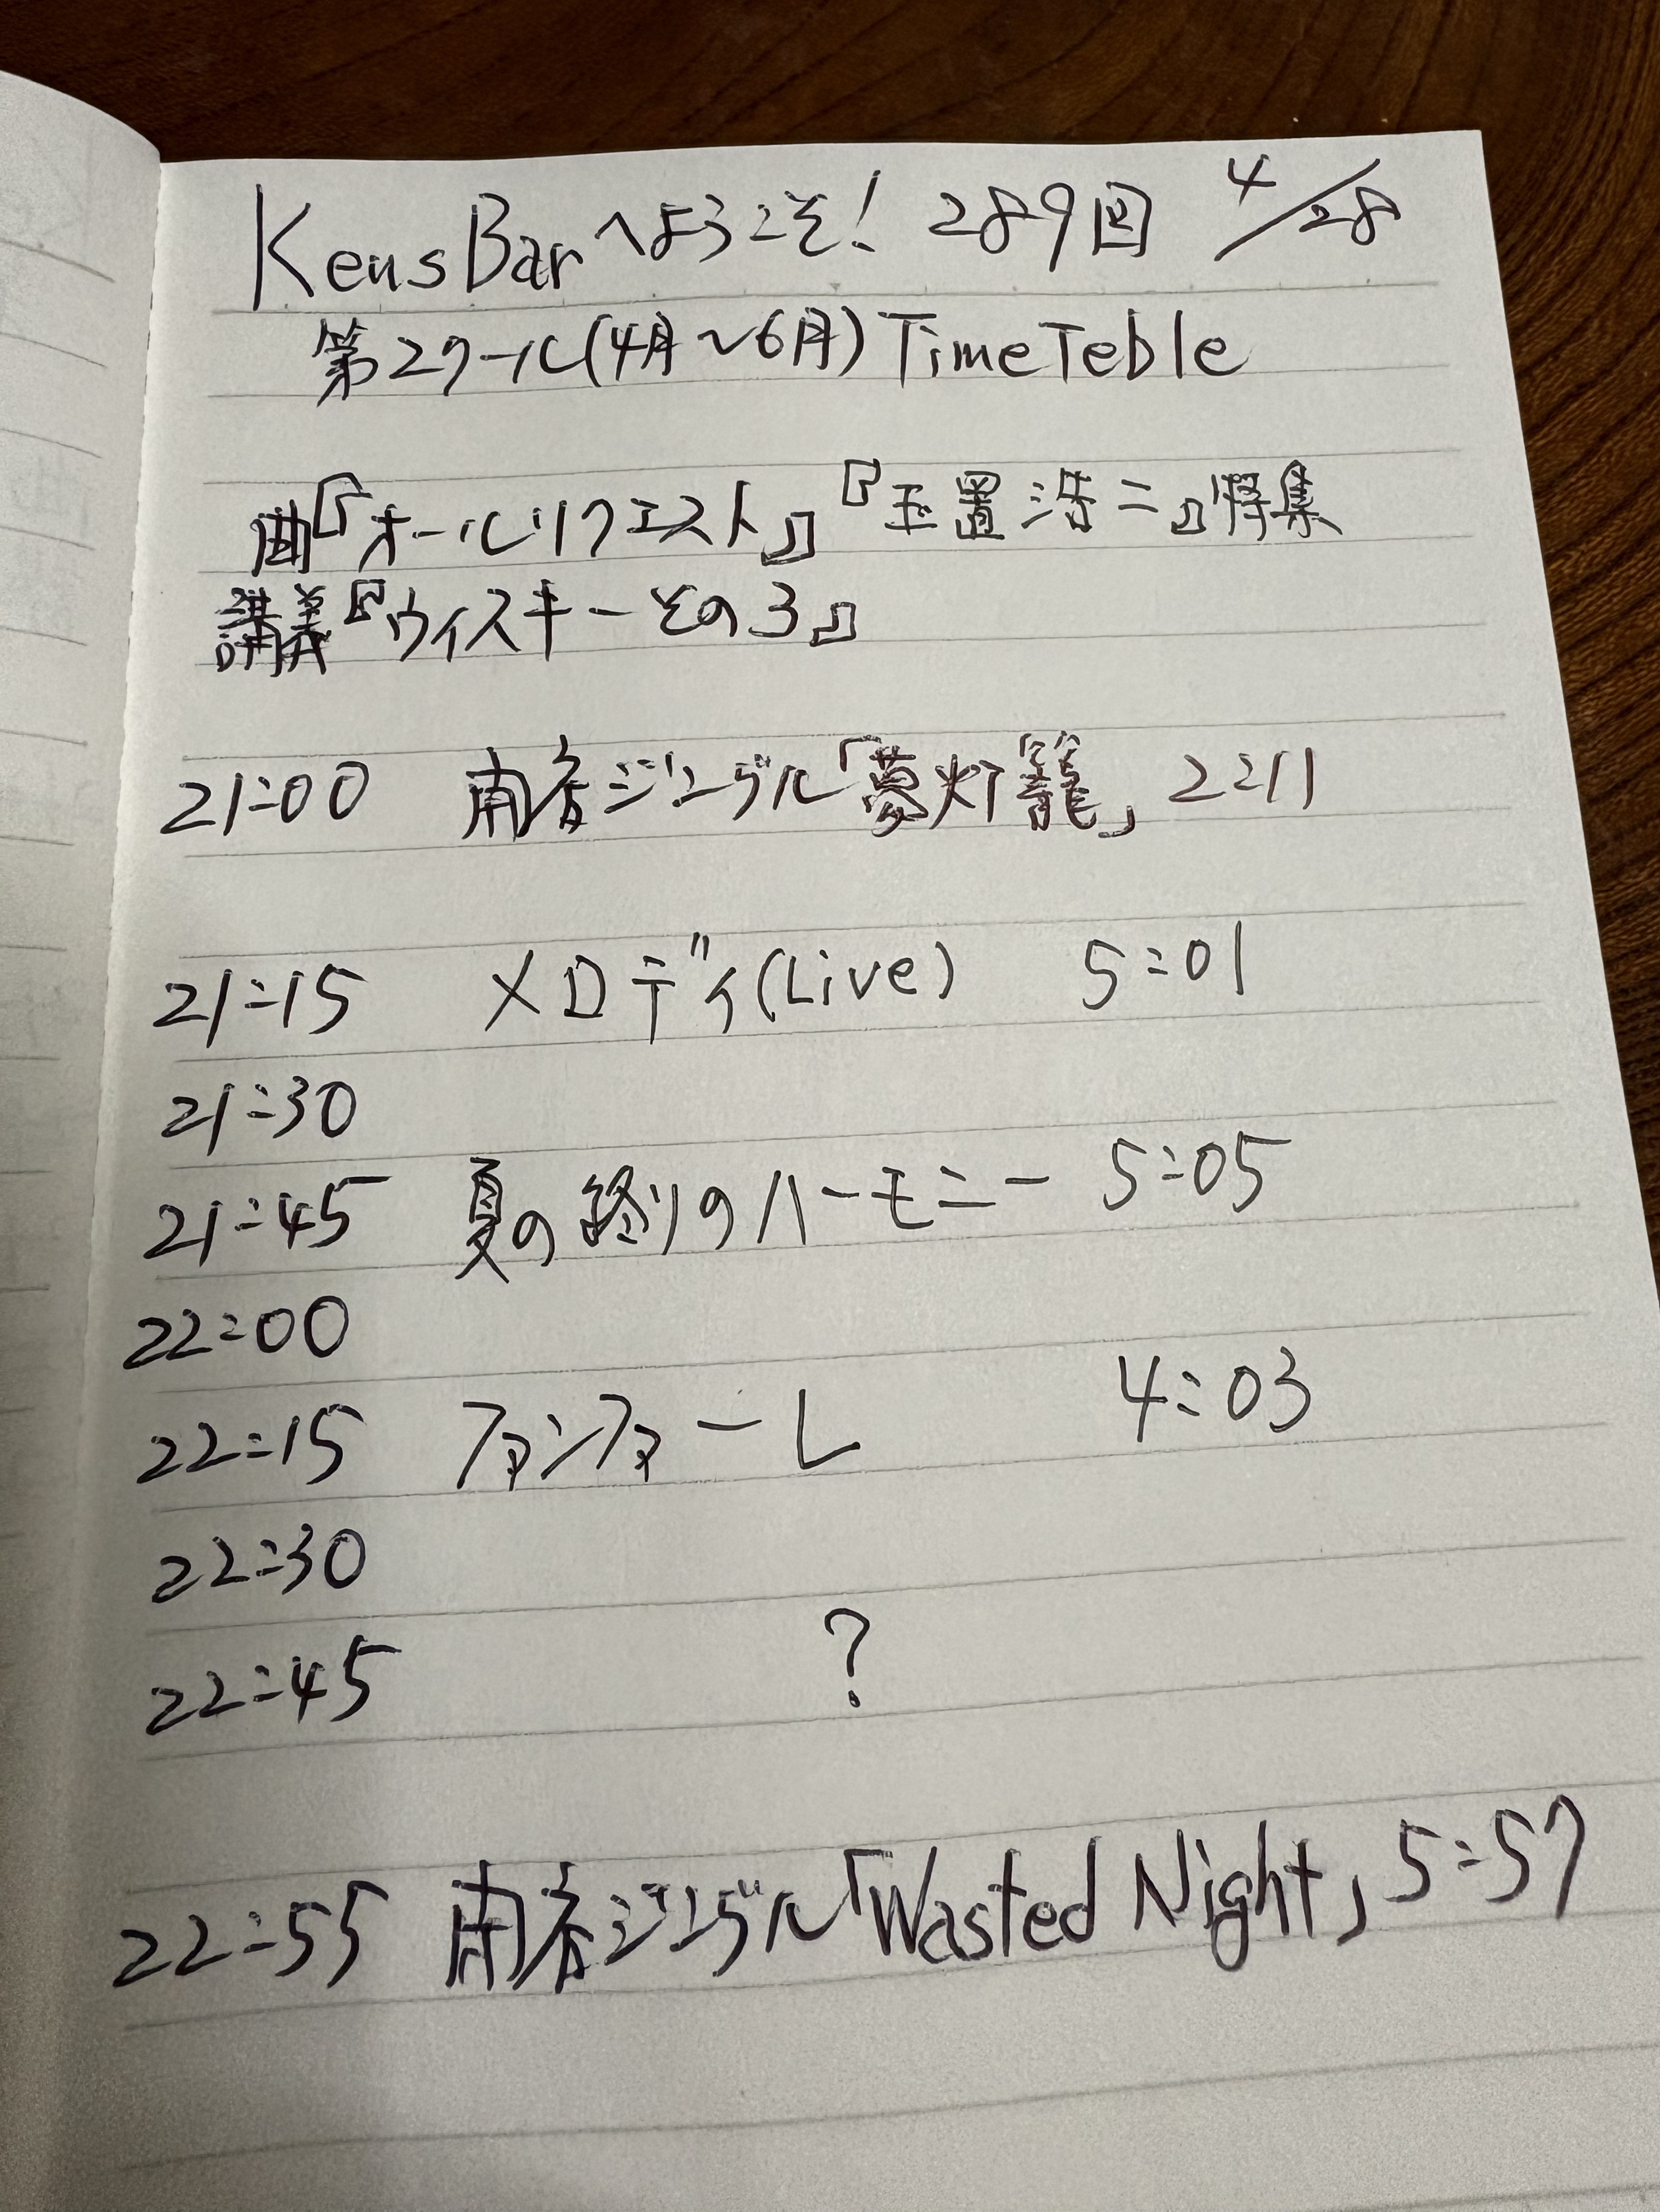 KensBarへようこそ! 289回 4/28
第2クール(4月〜6月)TimeTeble
曲『オールリクエスト』『玉置浩二』特集
講義『ウィスキーその3』
21:00 開店ジングル「夢灯籠」2:11
21:15 メロディ(Live) 5:01
21:30
21:45 夏の終りのハーモニー 5:05
22:00
22:15 ファンファーレ 4:03
22:30
22:45 ?
22:55 閉店ジングル「Wasted Night」5:57